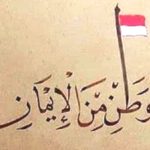 وَطَنِ مِنَ الْإِيْمَانِ